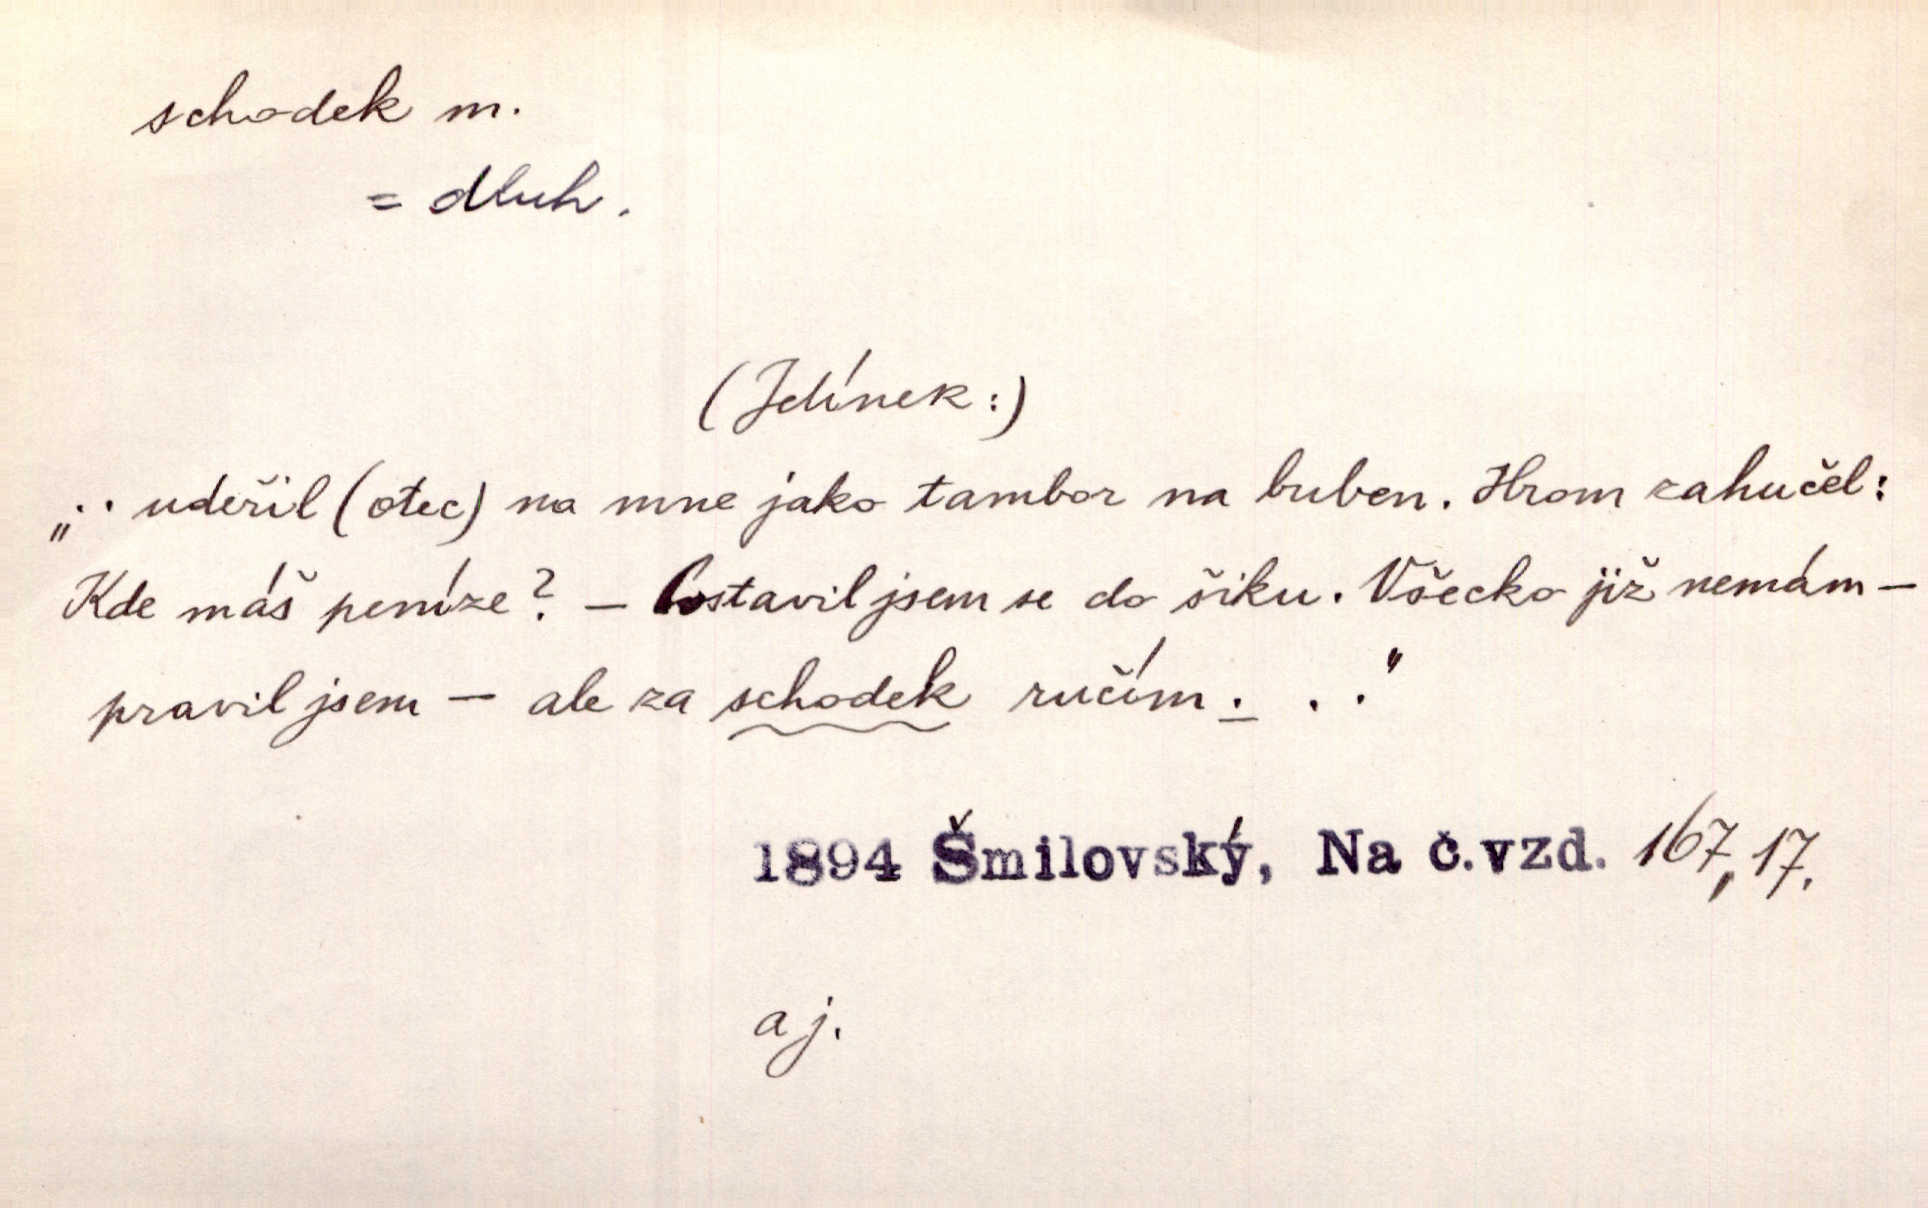 schodek m.
= dluh.
(Jelínek:)
„.. udeřil (otec) na mne jako tambor na buben. Hrom zahučel:
Kde máš peníze? — Postavil jsem se do šiku. Všecko již nemám —
pravil jsem — ale za schodek ručím . . ."
1894 Šmilovský, Na č.vzd. 167, 17.
aj.